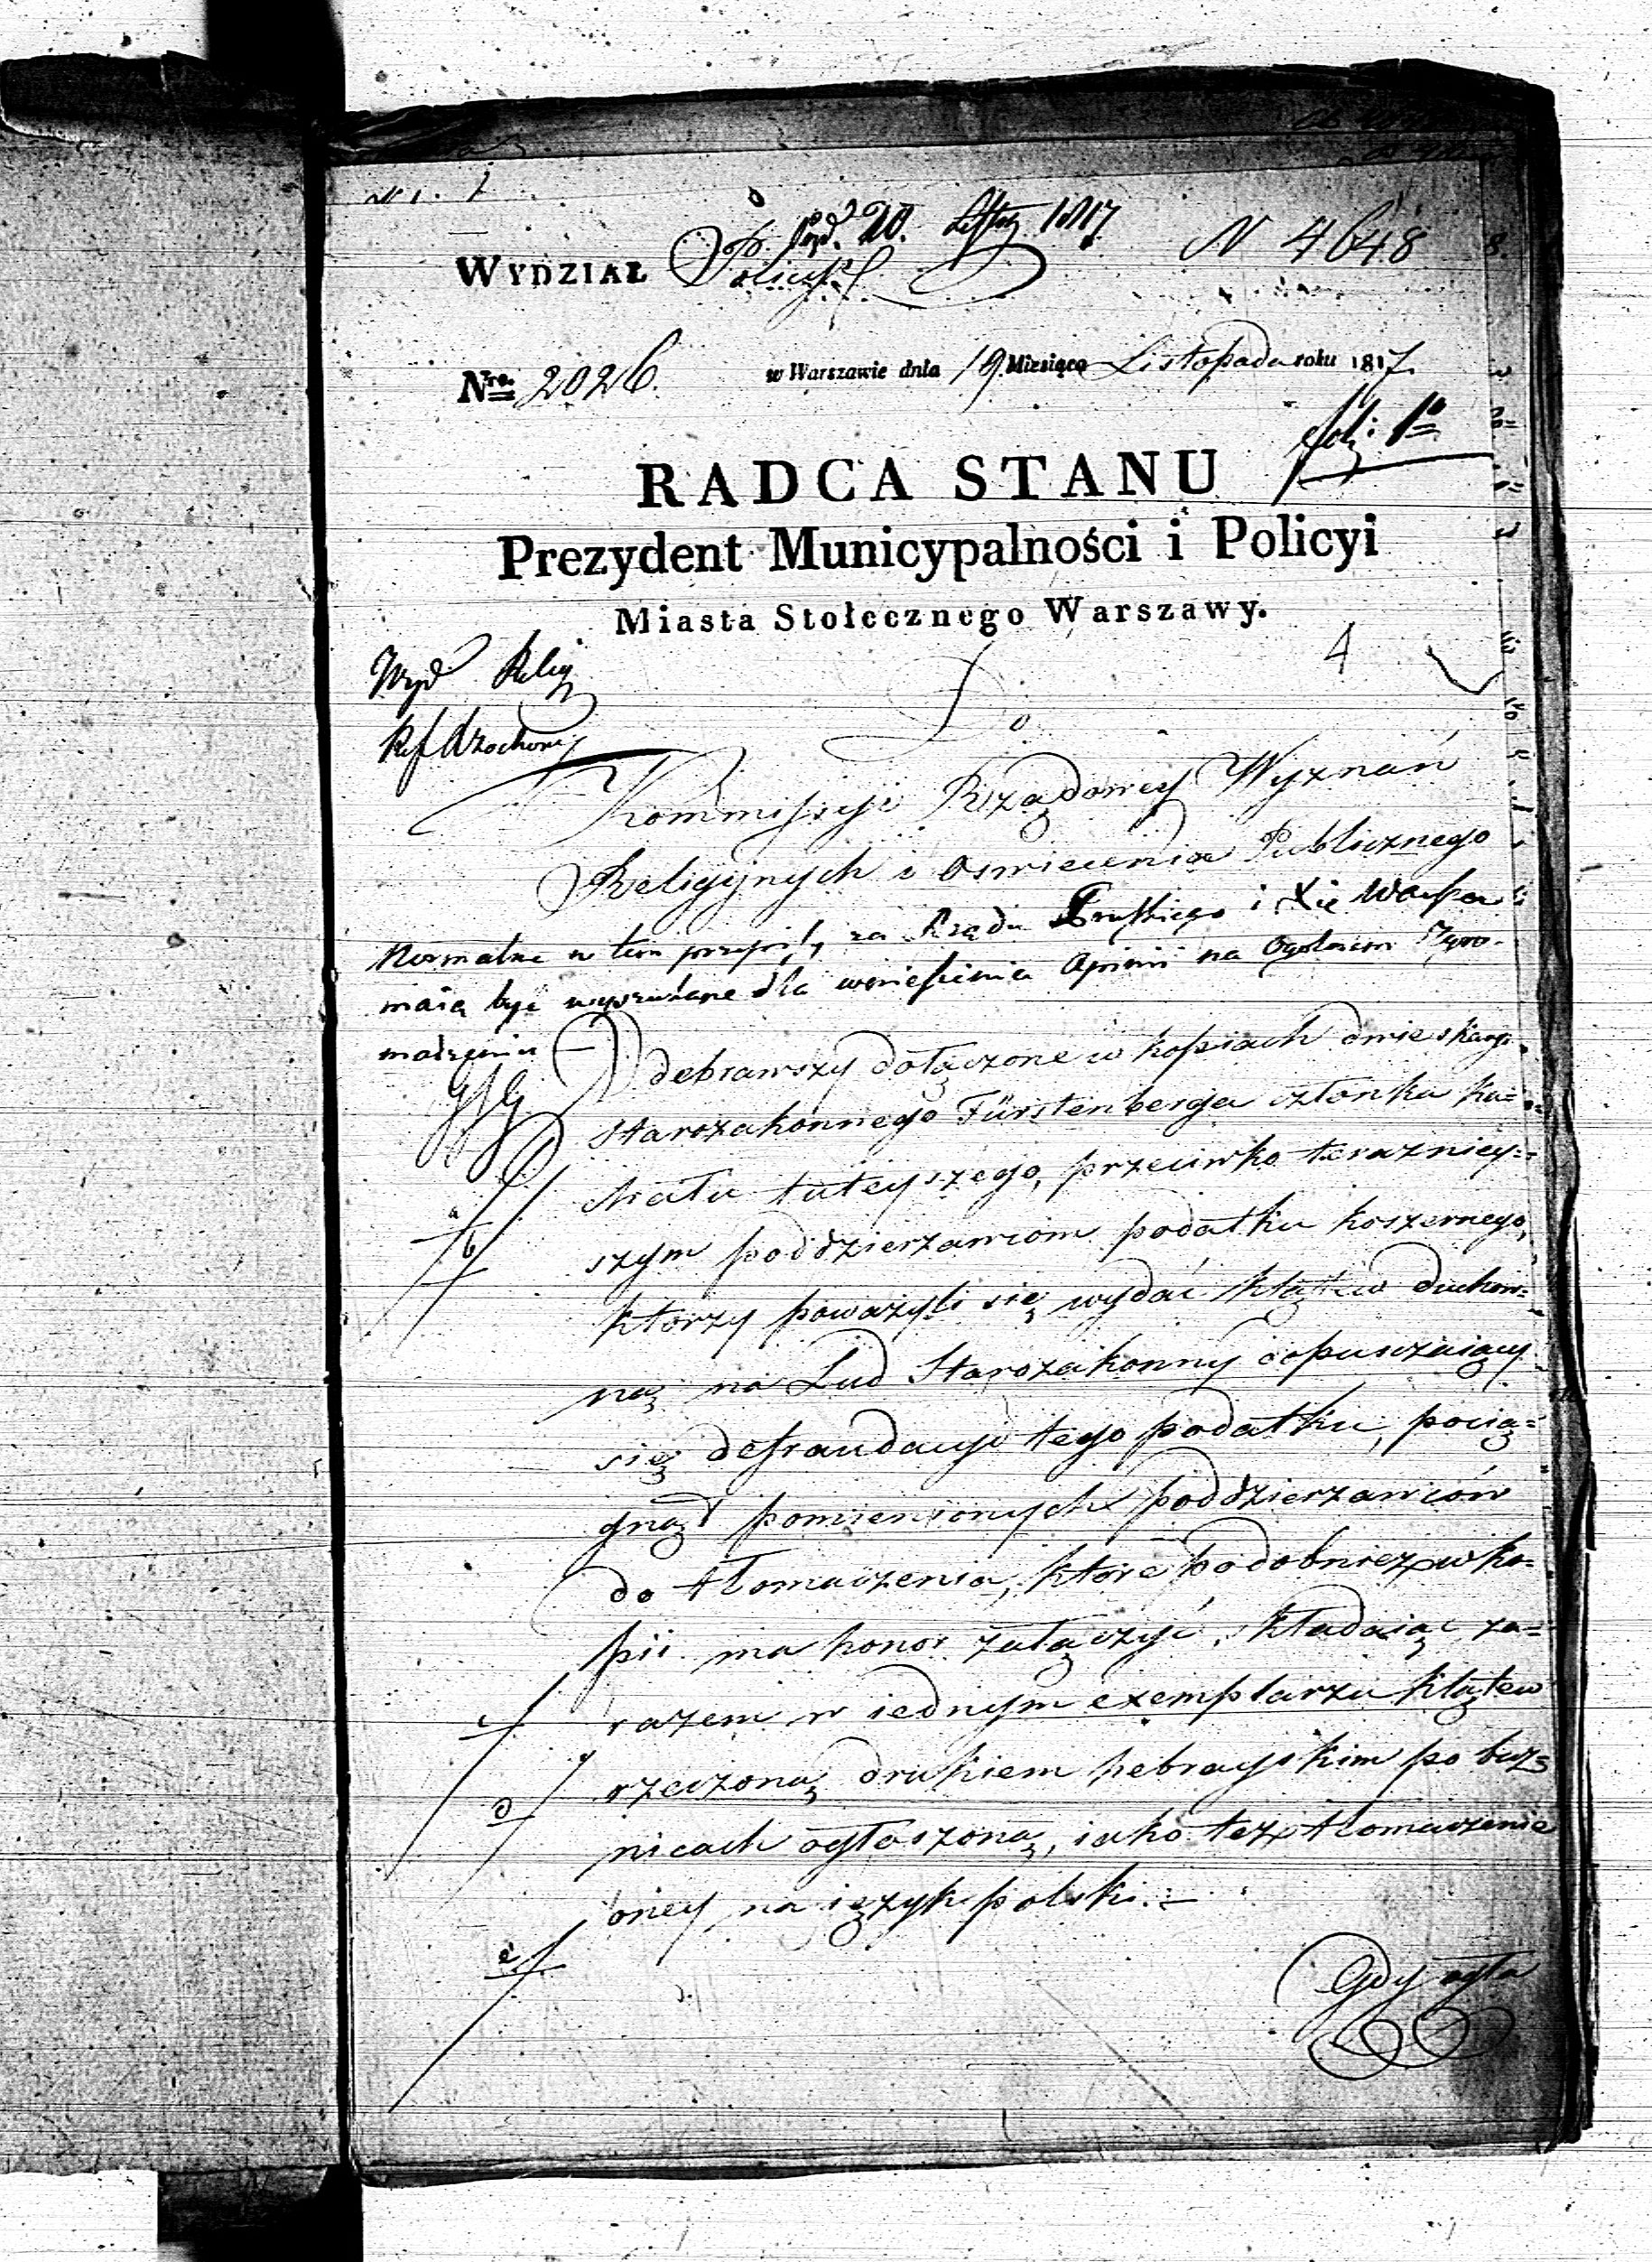 N 1. 1
Pręd. 20. Listop. 1817
N 4648
WYDZIAŁ Policyi
Nro. 2026. w Warszawie dnia 19 Miesiąca Listopada roku 1817.
fol: 1º
RADCA STANU
Prezydent Municypalności i Policyi
Miasta Stołecznego Warszawy.
4
Wyd Relig
Do
Kommissyi Rządowey Wyznań
Religijnych i Oswiecenia Publicznego
Normalne w tem przepisy, za Rządu Pruskiego i Xię Warsza
maią być wyszukane dla wniesienia Opinii na Ogolnem Zgro-
madzeniu
Odebrawszy dołączone w kopiach dwie skargi
Starozakonnego Fürstenberga członka Ka=
hału tuteyszego, przeciwko terazniey=
szym poddzierzawcom podatku koszernego,
a
b
ktorzy poważyli się wydać klątew duchow=
ną na Lud Starozakonny dopuszczaiący
się defraudacyi tego podatku, pocią=
gnął pomienionych poddzierzawców
do tłomaczenia, które podobnież w ko=
pii ma honor załączyć, składaiąc za=
razem w iednym exemplarzu klątew
c
rzeczoną drukiem hebrayskim po buz=
d
nicach ogłoszoną, iako też tłomaczenie
oney na ięzyk polski.
e
Gdy ogła